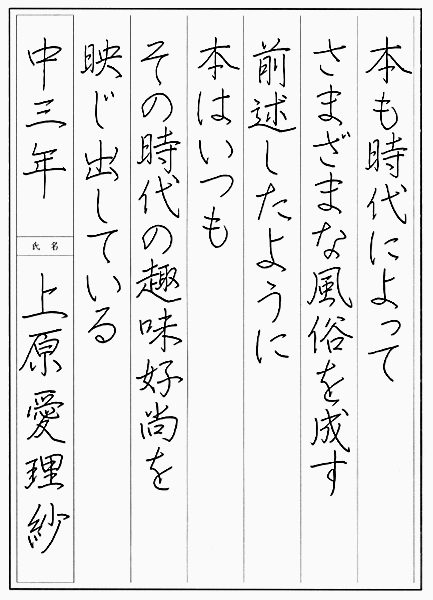 本も時代によって
さまざまな風俗を成す
前述したように
本はいつも
その時代の趣味好尚を
映じ出している
中三年
氏名
上原愛理紗